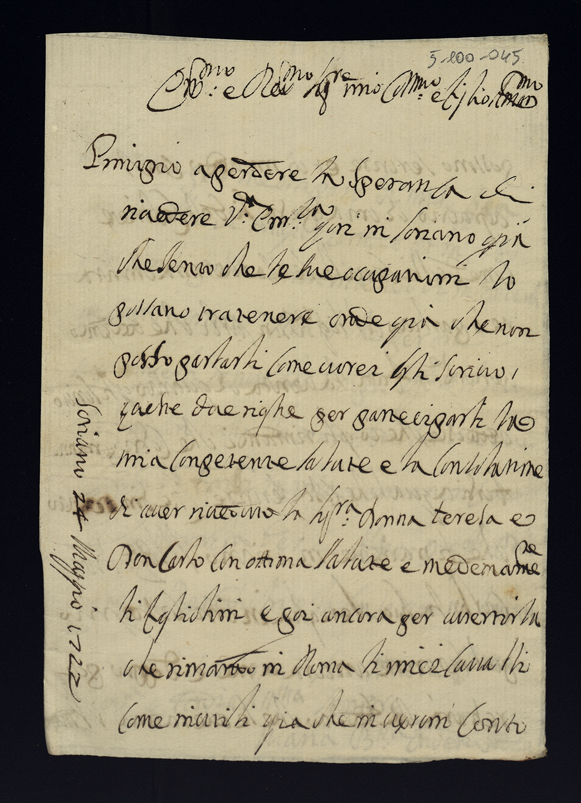 5-100-045
Em.mo e Rev.mo Sig.re mio Oss.mo e Figlio Amat.mo
Prinzipio a perdere la speranza di
riavedere V.a Em.za qui in Soriano già
che sento che le sue occupationi lo
possano tratenere onde già che non
posso parlarli come vorrei gli scrivo,
queste due righe per participarli la
mia competente salute e la consolatione
di aver riavuto la Sig.ra Donna Teresa e
Don Carlo con ottima salute e medemamente
li figliolini e poi ancora per avertirla
che rimando in Roma li miei cavalli
come inutili già che in nisun conto
Soriano 24 Maggio 1722